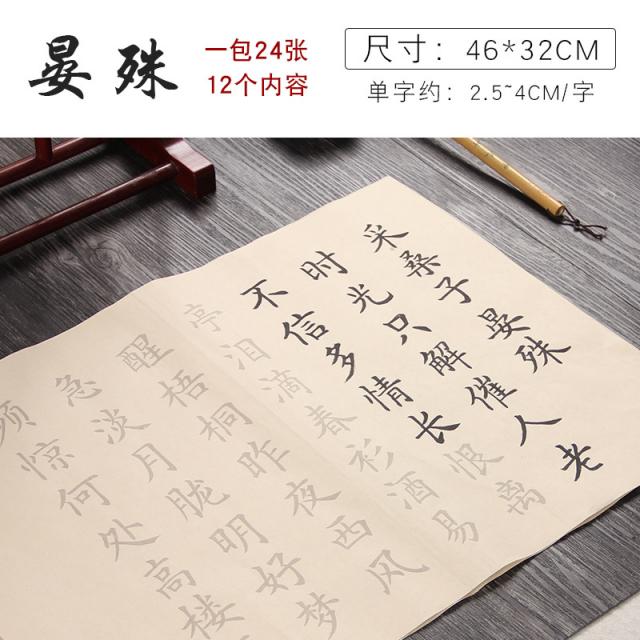 晏殊
一包24张
12个内容
尺寸：46*32CM
单字约：2.5~4CM/字
采桑子晏殊
时光只解催人老
不信多情长恨离
亭泪滴春衫酒易
醒梧桐昨夜西风
急淡月胧明好梦
频惊何处高楼